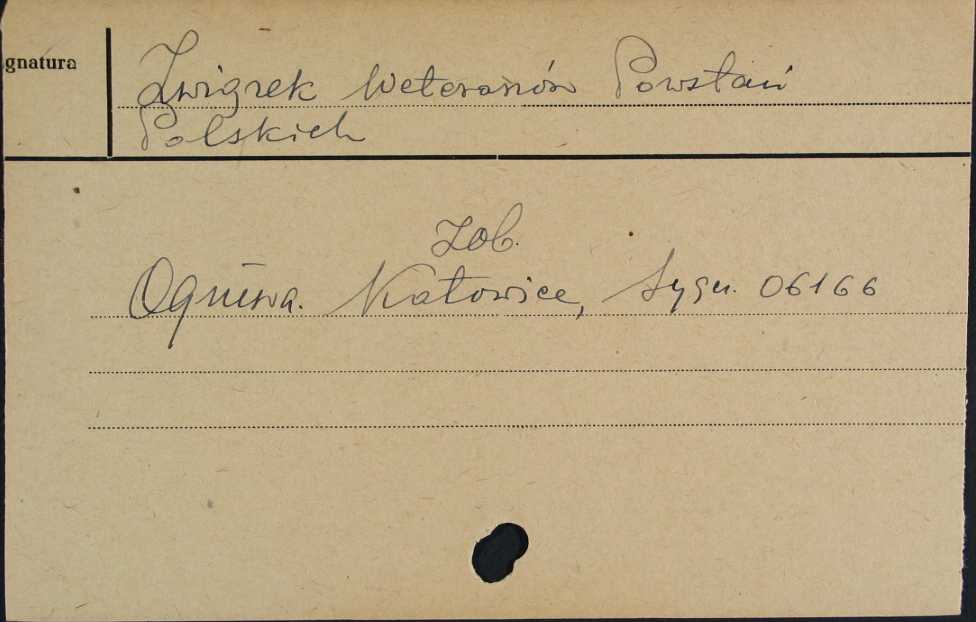 gnatura
Związek Weteranów Powstań
Polskich
zob.
Ogniwa. Katowice, Sygn. 06166